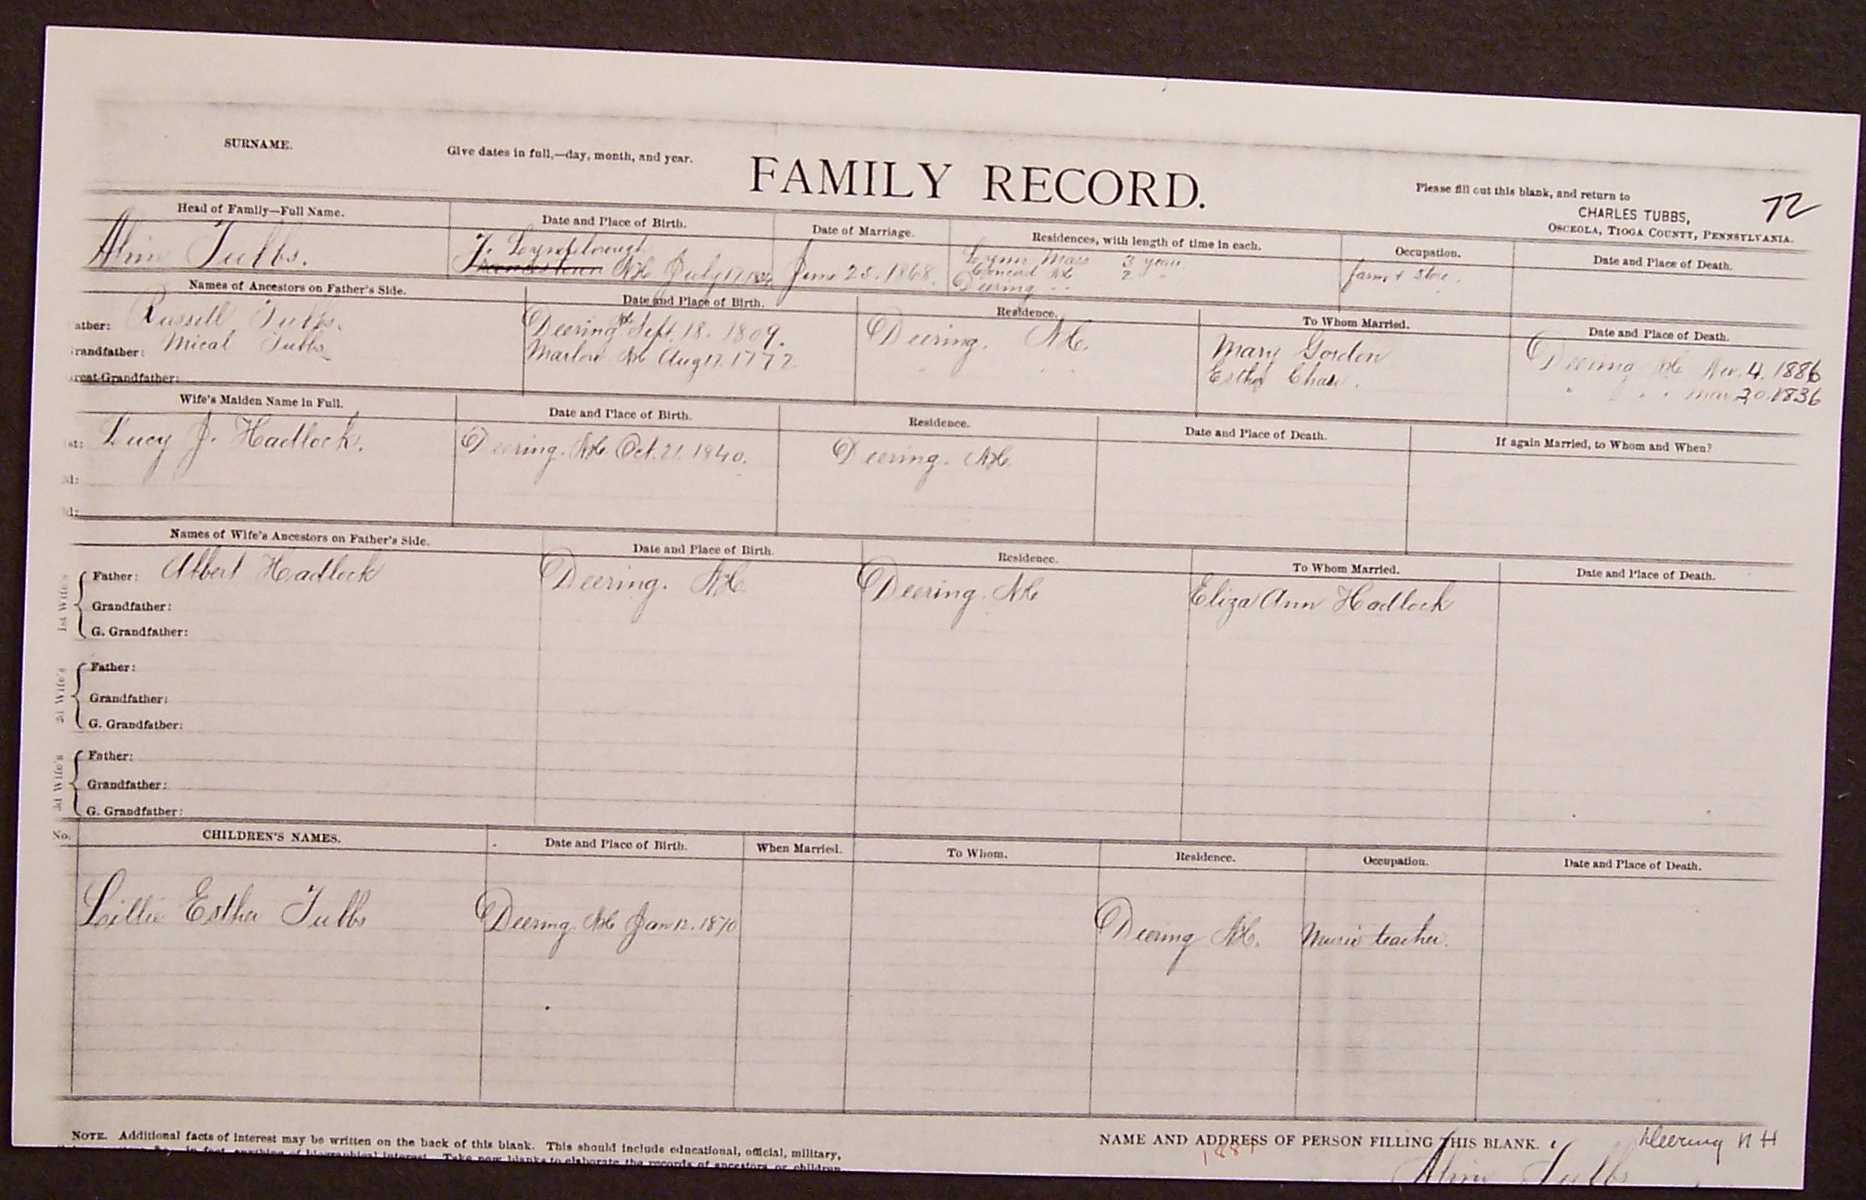 SURNAME.
Give dates in full,—day, month, and year.
FAMILY RECORD.
Please fill out this blank, and return to
CHARLES TUBBS,
OSCEOLA, TIOGA COUNTY, PENNSYLVANIA.
72
Head of Family—Full Name. Date and Place of Birth. Date of Marriage. Residences, with length of time in each. Occupation. Date and Place of Death.
Lyndeborough Lynn Mass 3 years
Alvin Tubbs. Francestown NH July 17 June 25. 1868. Concord NH 2 " farm & store.
Deering " "
Names of Ancestors on Father's Side. Date and Place of Birth. Residence. To Whom Married. Date and Place of Death.
ather: Russell Tubbs. Deering NH Sept. 18. 1809. Deering. NH. Mary Gordon Deering NH Nov. 4. 1886
randfather: Mical Tubbs Marlow NH Aug 17. 1772 " " Esther Chase. " " " Mar 20 1836
reat Grandfather:
Wife's Maiden Name in Full. Date and Place of Birth. Residence. Date and Place of Death. If again Married, to Whom and When?
st: Lucy J. Hadlock. Deering. NH Oct. 21. 1840. Deering. NH
d:
d:
Names of Wife's Ancestors on Father's Side. Date and Place of Birth. Residence. To Whom Married. Date and Place of Death.
1st Wife's
Father: Albert Hadlock Deering. NH Deering. NH Eliza Ann Hadlock
Grandfather:
G. Grandfather:
2d Wife's
Father:
Grandfather:
G. Grandfather:
3d Wife's
Father:
Grandfather:
G. Grandfather:
No. CHILDREN'S NAMES. Date and Place of Birth. When Married. To Whom. Residence. Occupation. Date and Place of Death.
Lillie Esther Tubbs Deering. NH Jan 12. 1870 Deering NH. Music teacher.
NOTE. Additional facts of interest may be written on the back of this blank. This should include educational, official, military,
in fact, anything of biographical interest. Take new blanks to elaborate the records of ancestors or children
NAME AND ADDRESS OF PERSON FILLING THIS BLANK. Deering N H
1889
Alvin Tubbs